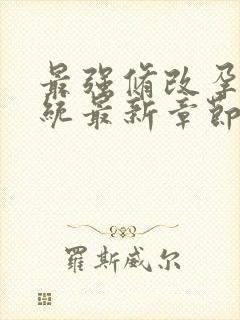 最强脩改孕
统最新章节
羅斯威尔